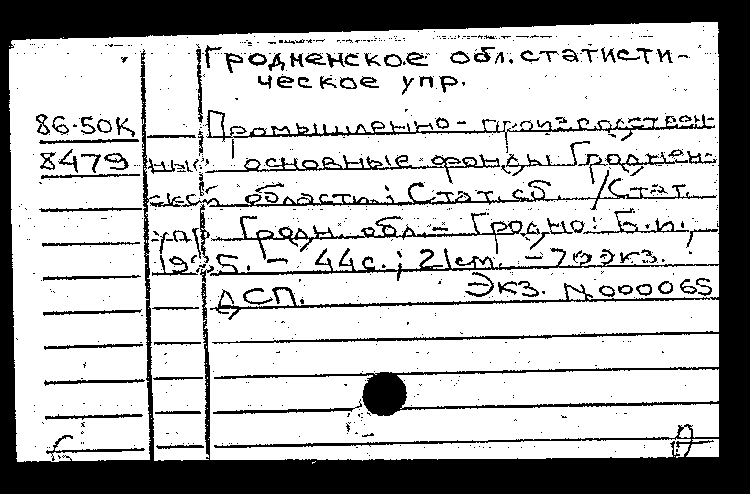 Гродненское обл. статисти-
ческое упр.
86-50К Промышленно-производствен-
8479 ные основные фонды Гроднен-
ской области: Стат. сб. /Стат.
упр. Гродн. обл. - Гродно: Б.и.,
1985. - 44с.; 21см. - 70экз.
ДСП. Экз. №000065